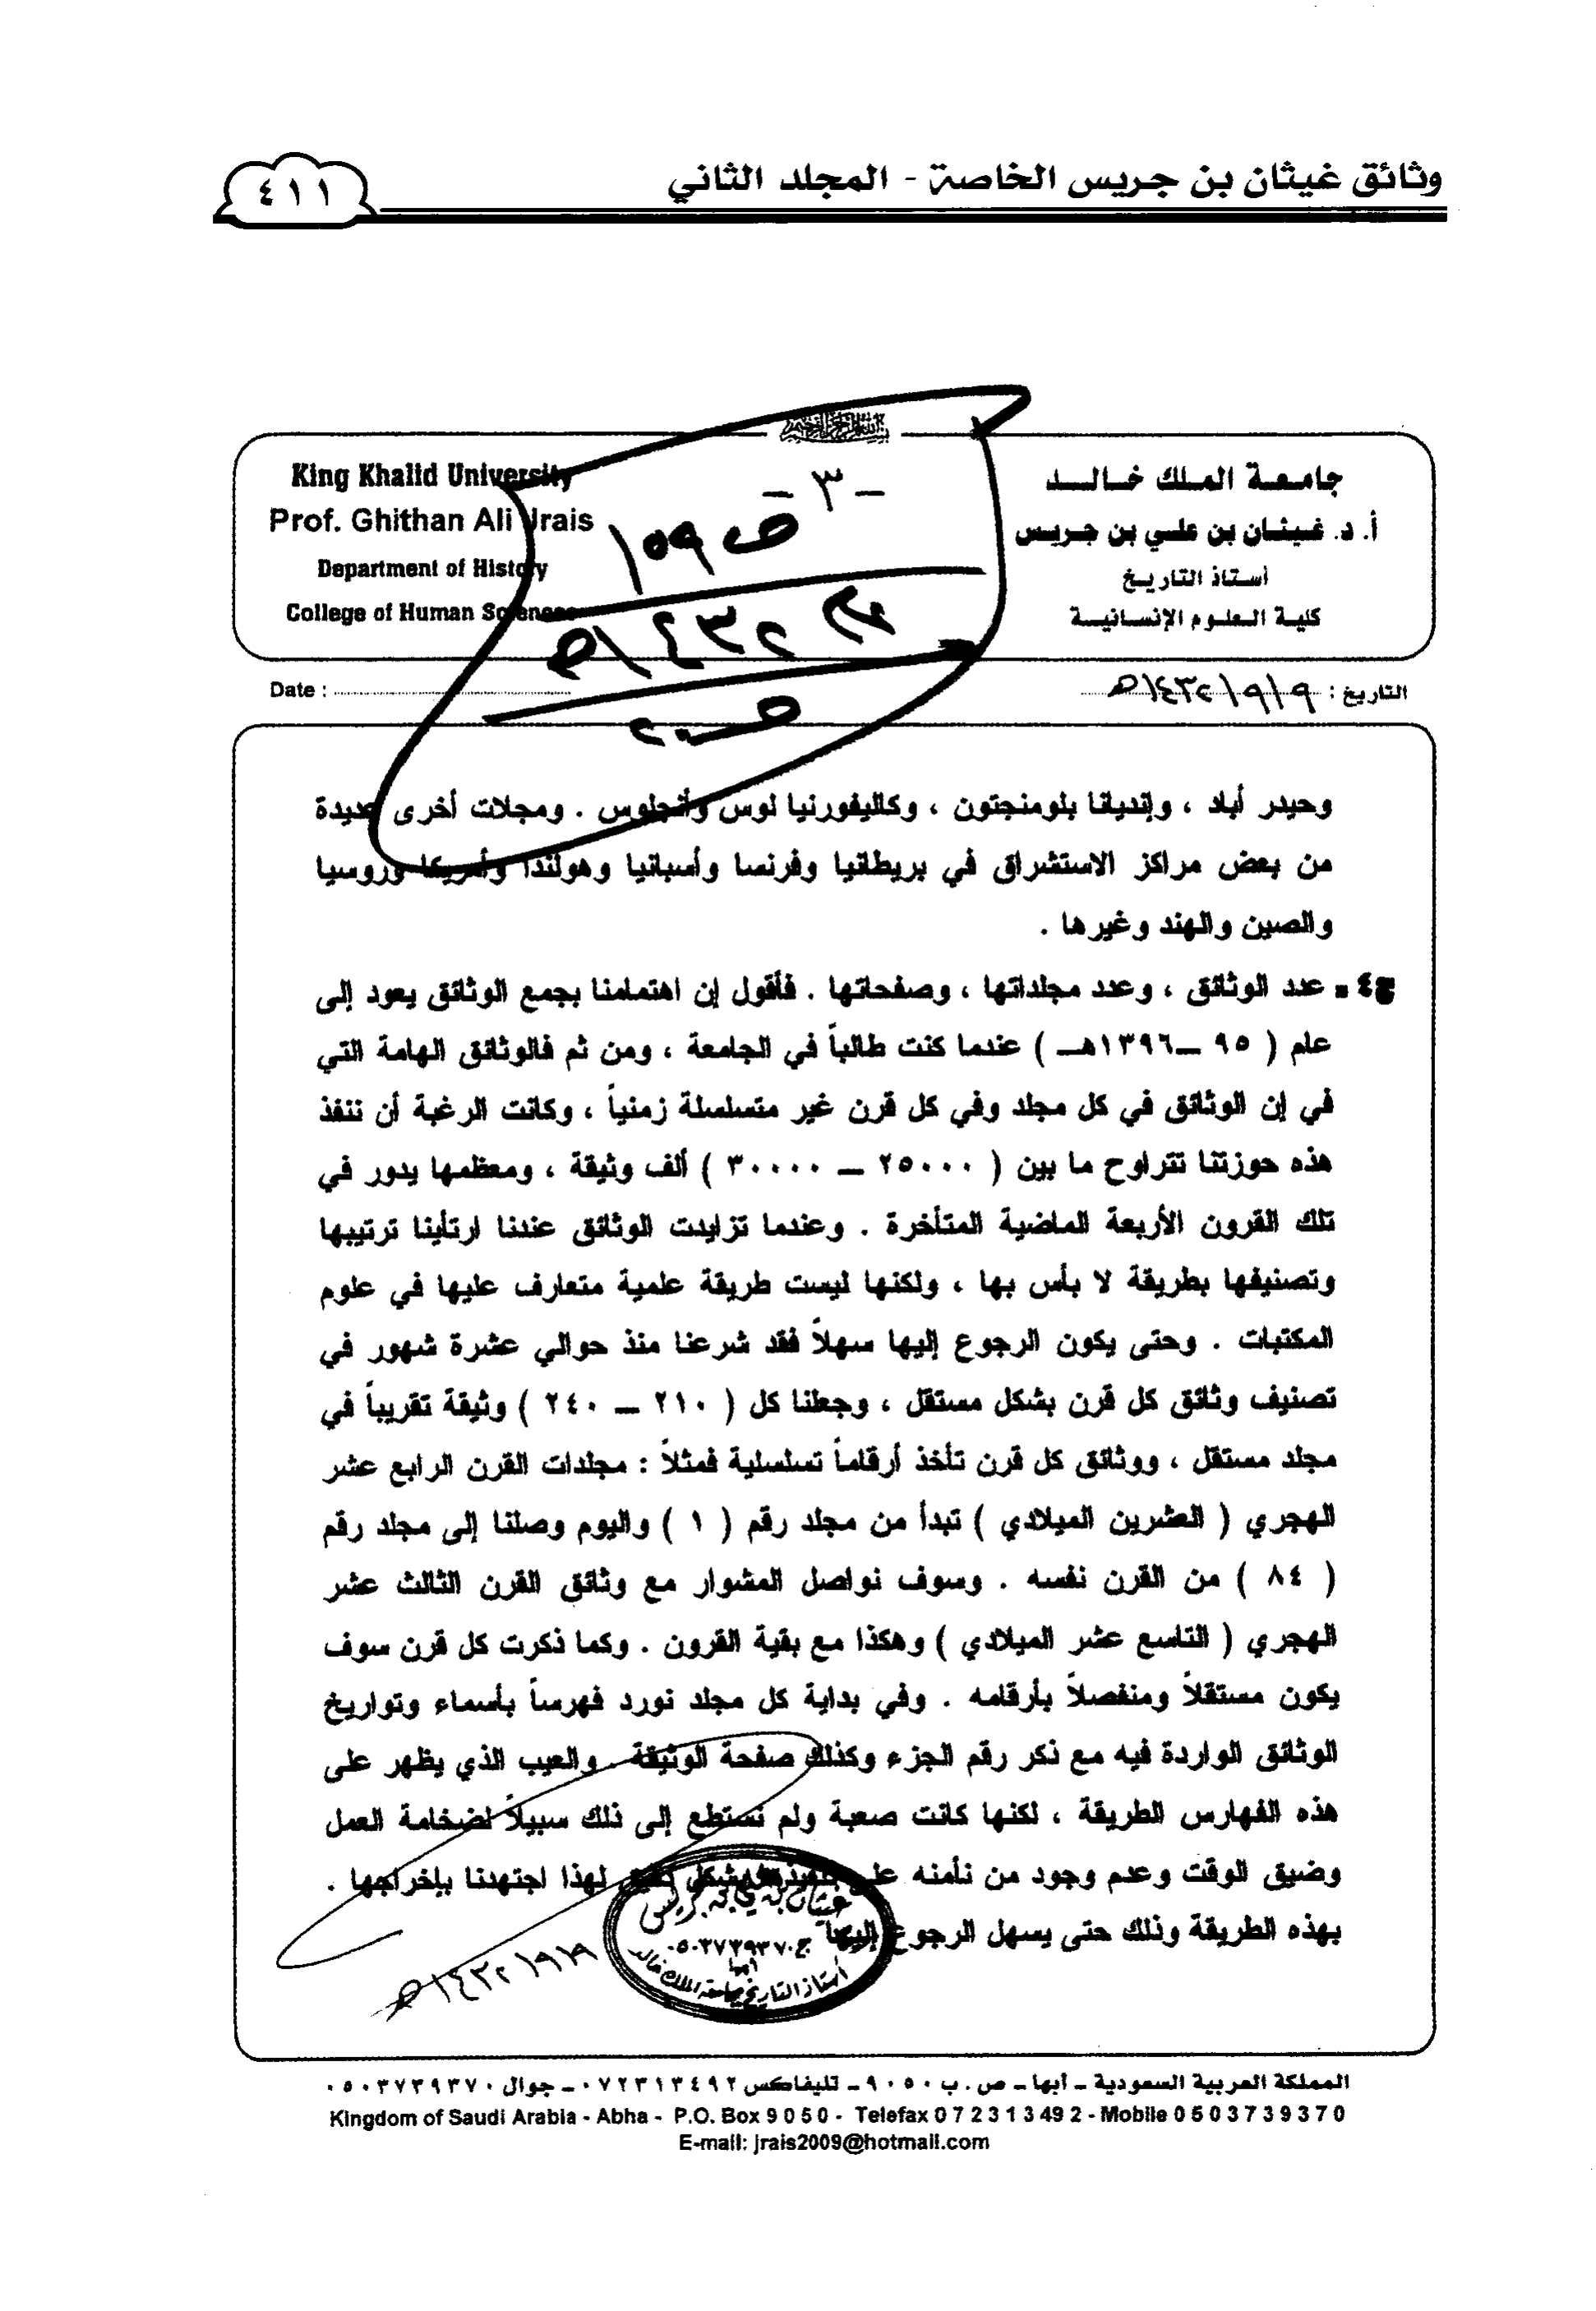 وثائق غيثان بن جريس الخاصة - المجلد الثاني
٤١١
جامعة الملك خالد
أ. د. غيثان بن علي بن جريس
أستاذ التاريخ
كلية العلوم الإنسانية
King Khalid University
Prof. Ghithan Ali Jrais
Department of History
College of Human Sciences
- ٣ -
ص ١٥٩
م ٢٣٤/هـ
التاريخ : ٩/٩/١٤٣٢هـ
Date :
وحيدر أباد ، وإنديانا بلومنجتون ، وكاليفورنيا لوس وأنجلوس . ومجلات أخرى عديدة
من بعض مراكز الاستشراق في بريطانيا وفرنسا وأسبانيا وهولندا وأمريكا وروسيا
والصين والهند وغيرها .
ج٤ - عدد الوثائق ، وعدد مجلداتها ، وصفحاتها . فأقول إن اهتمامنا بجمع الوثائق يعود إلى
عام ( ٩٥ – ١٣٩٦هـ ) عندما كنت طالباً في الجامعة ، ومن ثم فالوثائق الهامة التي
في إن الوثائق في كل مجلد وفي كل قرن غير متسلسلة زمنياً ، وكانت الرغبة أن ننفذ
هذه حوزتنا تتراوح ما بين ( ٢٥٠٠٠ – ٣٠٠٠٠ ) ألف وثيقة ، ومعظمها يدور في
تلك القرون الأربعة الماضية المتأخرة . وعندما تزايدت الوثائق عندنا ارتأينا ترتيبها
وتصنيفها بطريقة لا بأس بها ، ولكنها ليست طريقة علمية متعارف عليها في علوم
المكتبات . وحتى يكون الرجوع إليها سهلاً فقد شرعنا منذ حوالي عشرة شهور في
تصنيف وثائق كل قرن بشكل مستقل ، وجعلنا كل ( ٢١٠ – ٢٤٠ ) وثيقة تقريباً في
مجلد مستقل ، ووثائق كل قرن تأخذ أرقاماً تسلسلية فمثلاً : مجلدات القرن الرابع عشر
الهجري ( العشرين الميلادي ) تبدأ من مجلد رقم ( ١ ) واليوم وصلنا إلى مجلد رقم
( ٨٤ ) من القرن نفسه . وسوف نواصل المشوار مع وثائق القرن الثالث عشر
الهجري ( التاسع عشر الميلادي ) وهكذا مع بقية القرون . وكما ذكرت كل قرن سوف
يكون مستقلاً ومنفصلاً بأرقامه . وفي بداية كل مجلد نورد فهرساً بأسماء وتواريخ
الوثائق الواردة فيه مع ذكر رقم الجزء وكذلك صفحة الوثيقة . والعيب الذي يظهر على
هذه الفهارس الطريقة ، لكنها كانت صعبة ولم نستطع إلى ذلك سبيلاً لضخامة العمل
وضيق الوقت وعدم وجود من نأمنه على تنفيذها بشكل لهذا اجتهدنا بإخراجها .
بهذه الطريقة وذلك حتى يسهل الرجوع إليها
غيثان بن علي بن جريس
ج. ٠٥٠٣٧٣٩٣٧٠
أبها
أستاذ التاريخ بجامعة الملك خالد
٩/٩/١٤٣٢هـ
المملكة العربية السعودية – أبها – ص . ب ٩٠٥٠ – تليفاكس ٠٧٢٣١٣٤٩٢ – جوال ٠٥٠٣٧٣٩٣٧٠
Kingdom of Saudi Arabia - Abha - P.O. Box 9 0 5 0 - Telefax 0 7 2 3 1 3 49 2 - Mobile 0 5 0 3 7 3 9 3 7 0
E-mail: jrais2009@hotmail.com